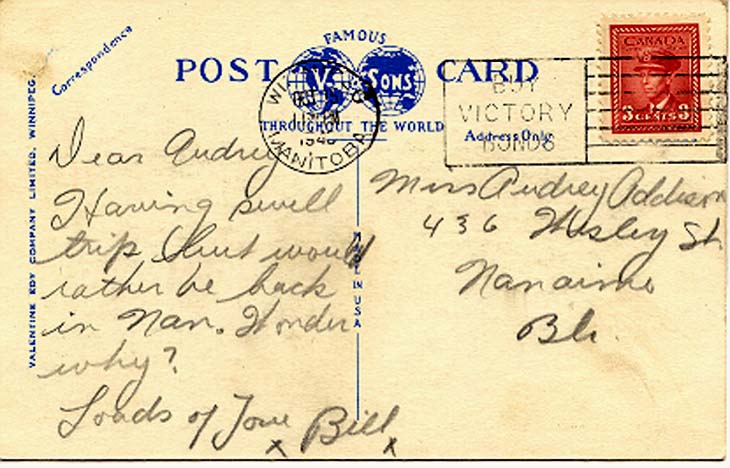 FAMOUS
POST CARD
V. & SONS
THROUGHOUT THE WORLD
Correspondence
Address Only
VALENTINE EDY COMPANY LIMITED, WINNIPEG.
MADE IN USA
MANITOBA
BUY
VICTORY
BONDS
CANADA
3 CENTS 3
Dear Audrey
Having swell
trip but would
rather be back
in Nan. Wonder
why?
Loads of Love Bill
x x
Miss Audrey Addison
436 Wesley St.
Nanaimo
B.C.